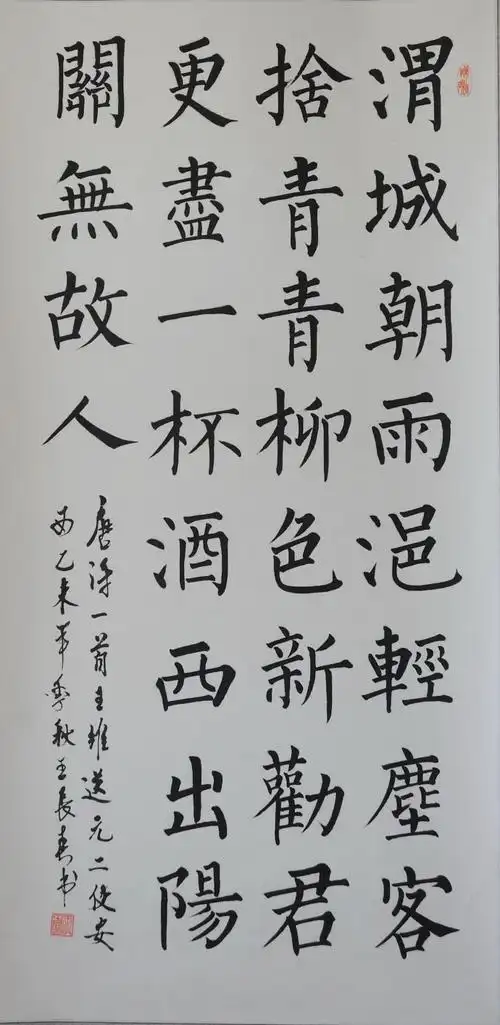 渭城朝雨浥輕塵客
捨青青柳色新勸君
更盡一杯酒西出陽
關無故人
唐诗一首王維送元二使安
西乙未年季秋王長春书